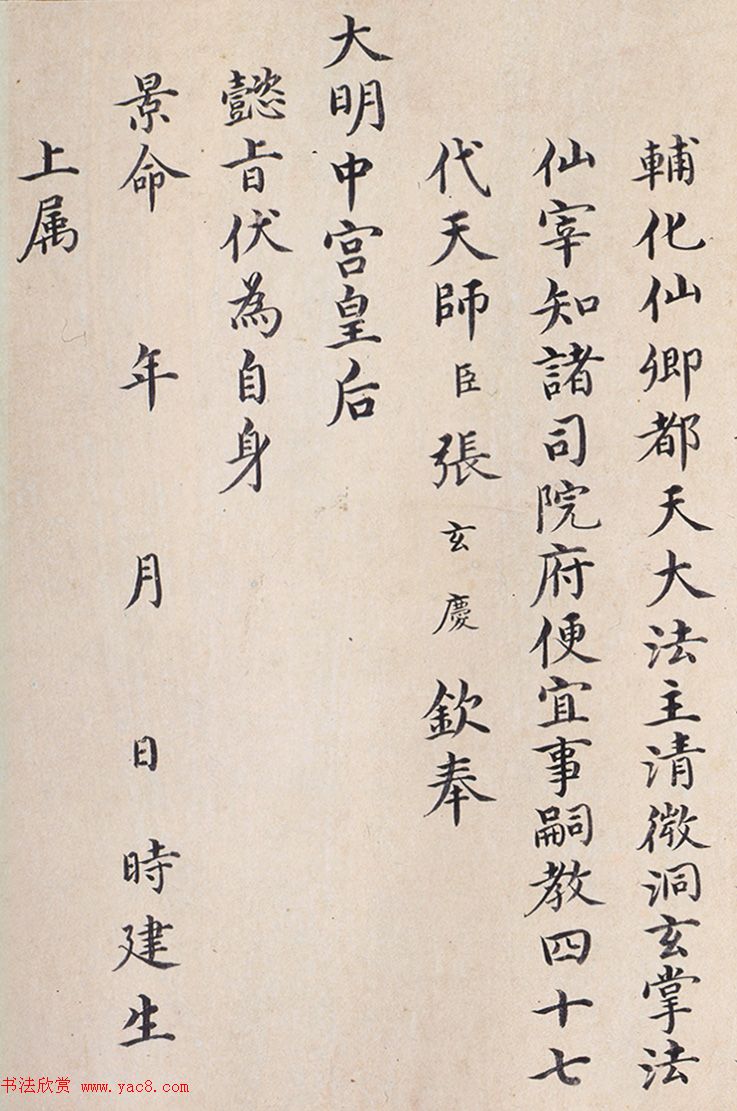 輔化仙卿都天大法主清微洞玄掌法
仙宰知諸司院府便宜事嗣教四十七
代天師臣張玄慶欽奉
大明中宮皇后
懿旨伏為自身
景命 年 月 日 時建生
上属
书法欣赏 www.yac8.com